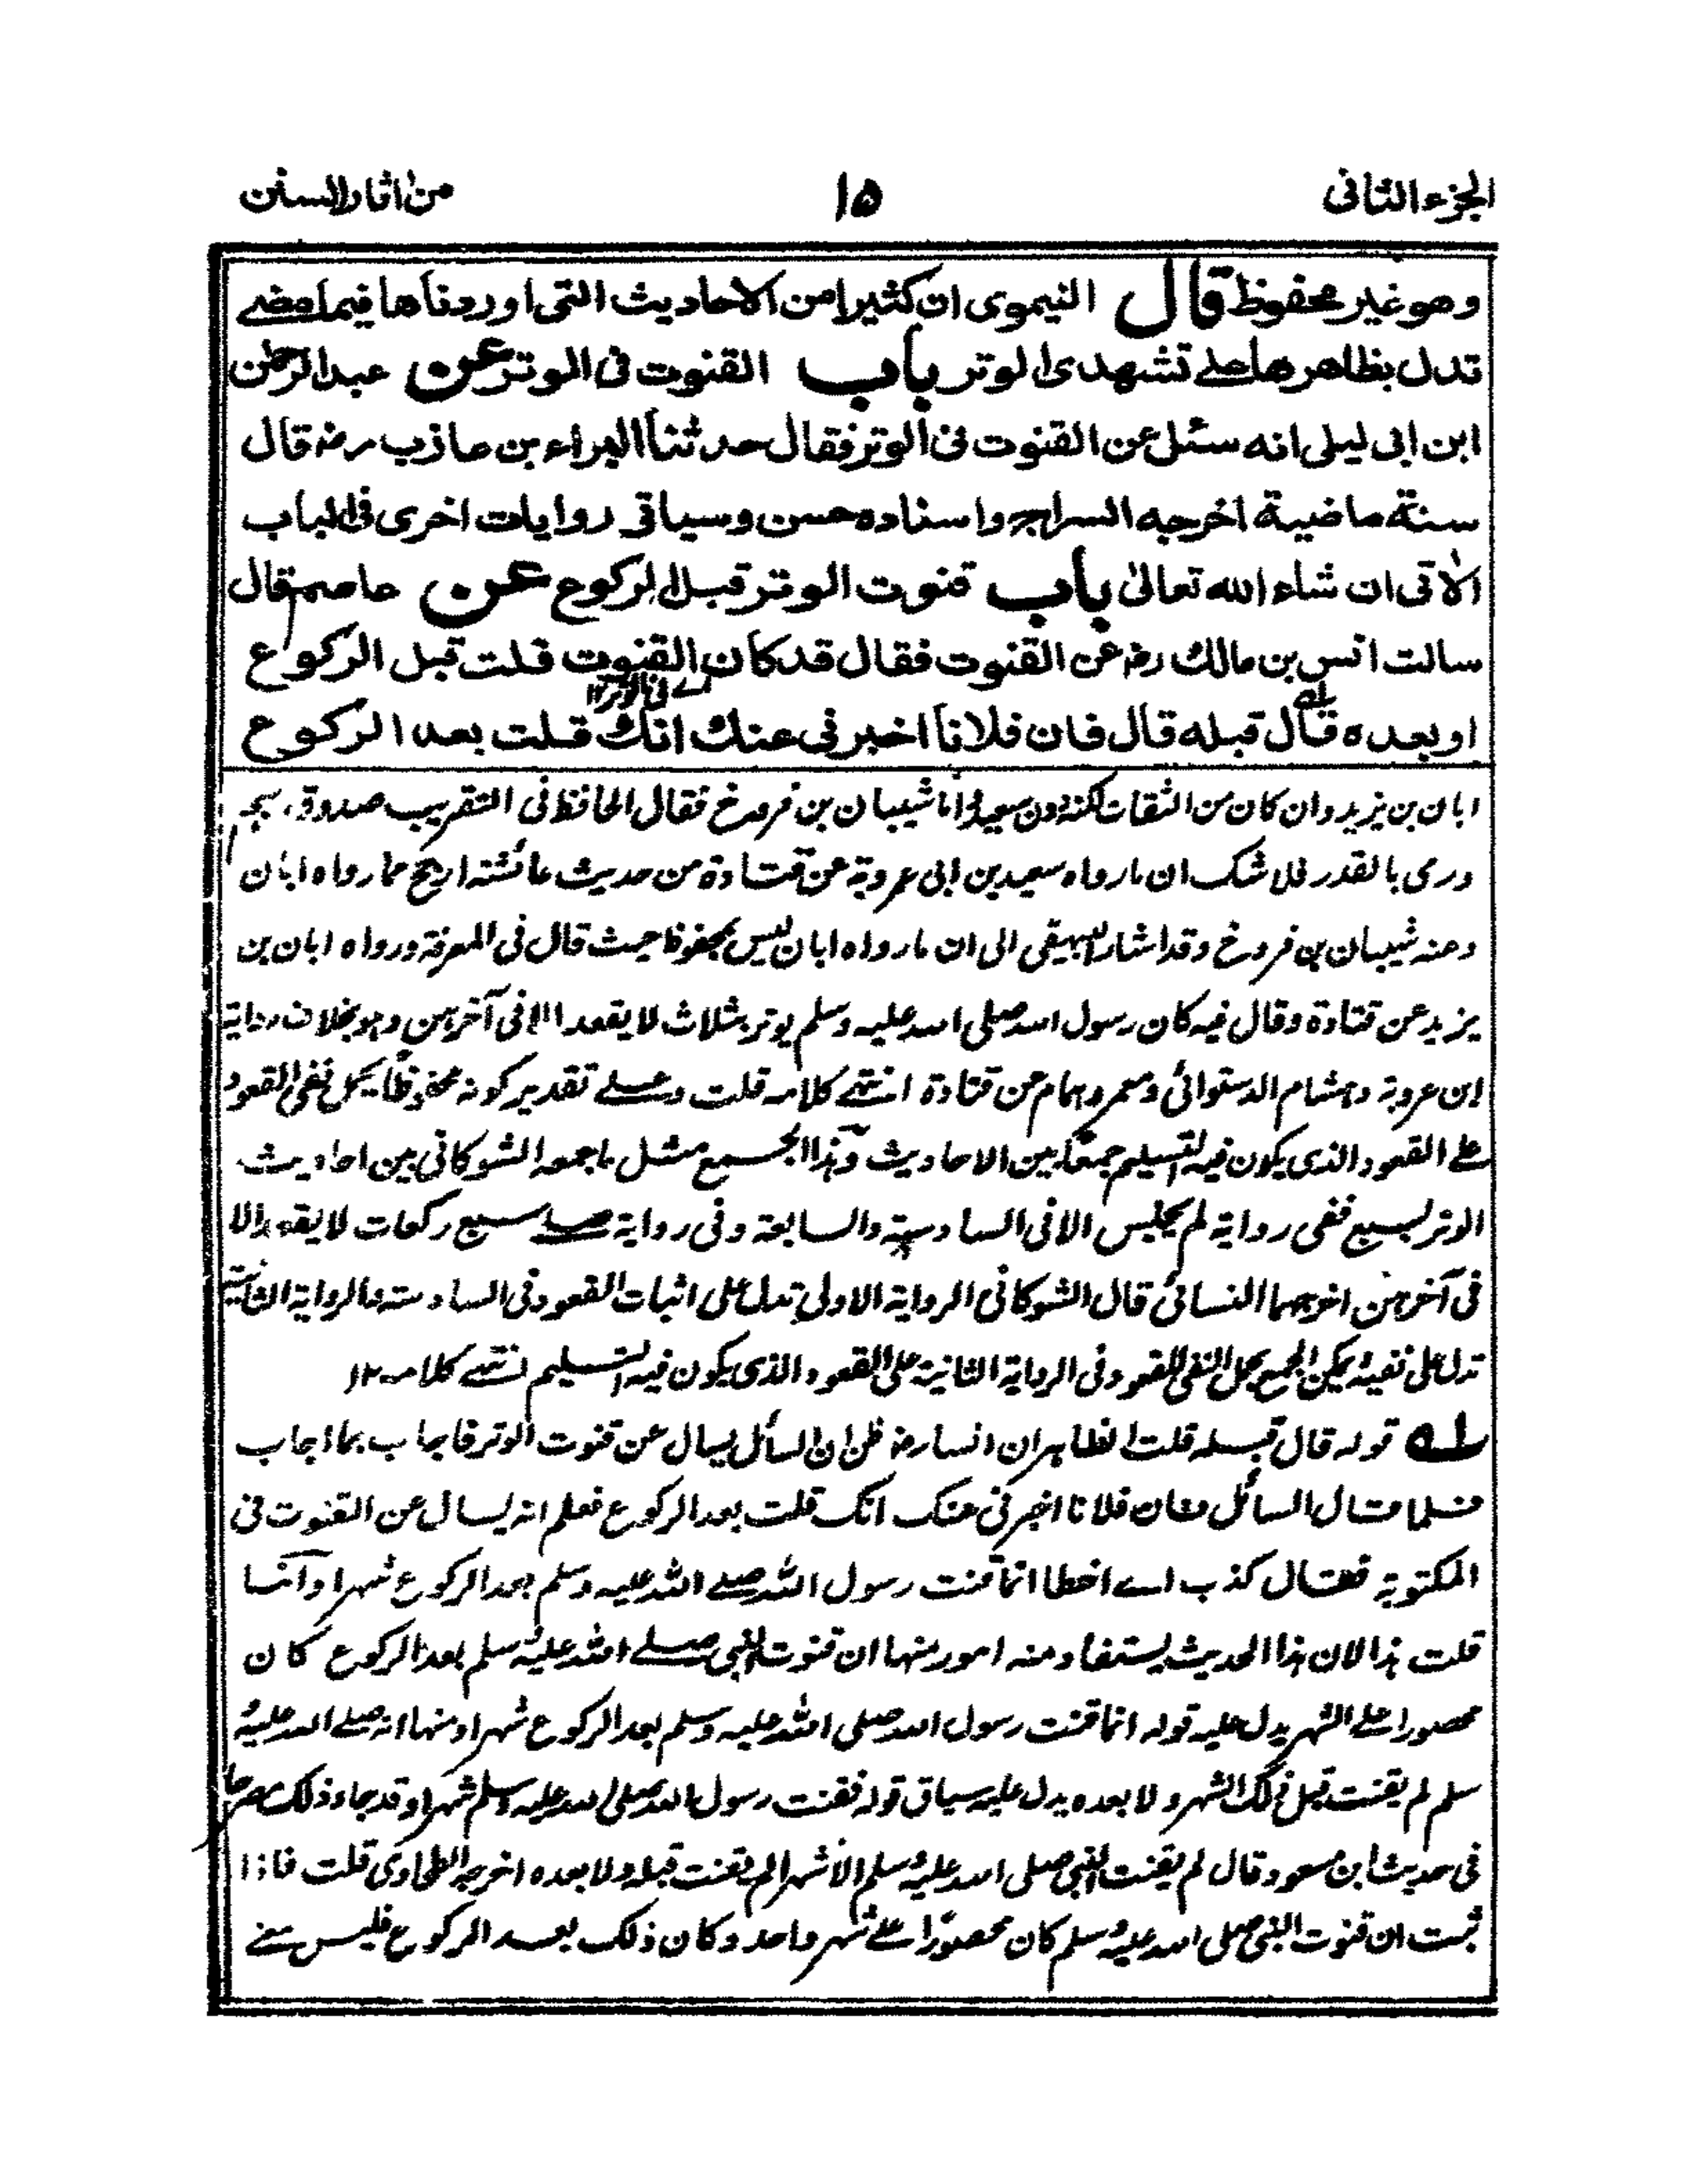 الجزء الثانى
١٥
من اثار السنن
وهو غير محفوظ قال النيموى ان كثيرا من الاحاديث التى اوردناها فيما مضے
تدل بظاهرها علے تشهدى الوتر باب القنوت فى الوتر عن عبد الرحمٰن
ابن ابى ليلى انه سئل عن القنوت فى الوتر فقال حدثنا البراء بن عازب رضـ قال
سنة ماضية اخرجه السراج واسناده حسن وسياتى روايات اخرى فى الباب
الاٰتى ان شاء الله تعالىٰ باب قنوت الوتر قبل الركوع عن عاصم قال
سالت انس بن مالك رضـ عن القنوت فقال قد كان القنوت قلت قبل الركوع
اے فى الوتر ١٢
او بعده قال قبله قال فان فلانا اخبرنى عنك انك قلت بعد الركوع
ابان بن يزيد وان كان من الثقات لكنه دون سعيد واما شيبان بن فروخ فقال الحافظ فى التقريب صدوق يهم
ورمى بالقدر فلا شك ان ما رواه سعيد بن ابى عروبة عن قتادة من حديث عائشة ارجح مما رواه ابان
وعنه شيبان بن فروخ وقد اشار البيهقى الى ان ما رواه ابان ليس بمحفوظ حيث قال فى المعرفة ورواه ابان بن
يزيد عن قتادة وقال فيه كان رسول الله صلى الله عليه وسلم يوتر بثلاث لا يقعد الا فى آخرهن وهو بخلاف رواية
ابن عروبة وهشام الدستوائى ومعمر وهمام عن قتادة انتهے كلامه قلت وعلے تقدير كونه محفوظا يحمل نفى القعود
علے القعود الذى يكون فيه التسليم جمعا بين الاحاديث وهذا الجمع مثل ما جمعه الشوكانى بين احاديث
الوتر بسبع ففى رواية لم يجلس الا فى السادسة والسابعة وفى رواية صلے سبع ركعات لا يقعد الا
فى آخرهن اخرجهما النسائى قال الشوكانى الرواية الاولى تدل على اثبات القعود فى السادسة والرواية الثانية
تدل على نفيه يمكن الجمع بحمل النفى للقعود فى الرواية الثانية على القعود الذى يكون فيه التسليم انتهے كلامه ١٢
له قوله قال قبله قلت الظاهر ان انسا رضـ ظن ان السائل يسال عن قنوت الوتر فاجاب بما اجاب
فلما قال السائل فان فلانا اخبرنى عنك انك قلت بعد الركوع فعلم انه يسال عن القنوت فى
المكتوبة فقال كذب اے اخطا انما قنت رسول الله صلے الله عليه وسلم بعد الركوع شهرا وآنسا
قلت هذا لان هذا الحديث يستفاد منه امور منها ان قنوت النبى صلے الله عليه وسلم بعد الركوع كان
محصورا علے الشهر يدل عليه قوله انما قنت رسول الله صلى الله عليه وسلم بعد الركوع شهرا ومنها انه صلے الله عليه و
سلم لم يقنت قبل ذلك الشهر ولا بعده يدل عليه سياق قوله فقنت رسول الله صلى الله عليه وسلم شهرا وقد جاء ذلك مصرحا
فى حديث ابن مسعود قال لم يقنت النبى صلى الله عليه وسلم الا شهرا لم يقنت قبله ولا بعده اخرجه الطحاوى قلت فاذا
ثبت ان قنوت النبى صلى الله عليه وسلم كان محصورا علے شهر واحد وكان ذلك بعد الركوع فليس فے